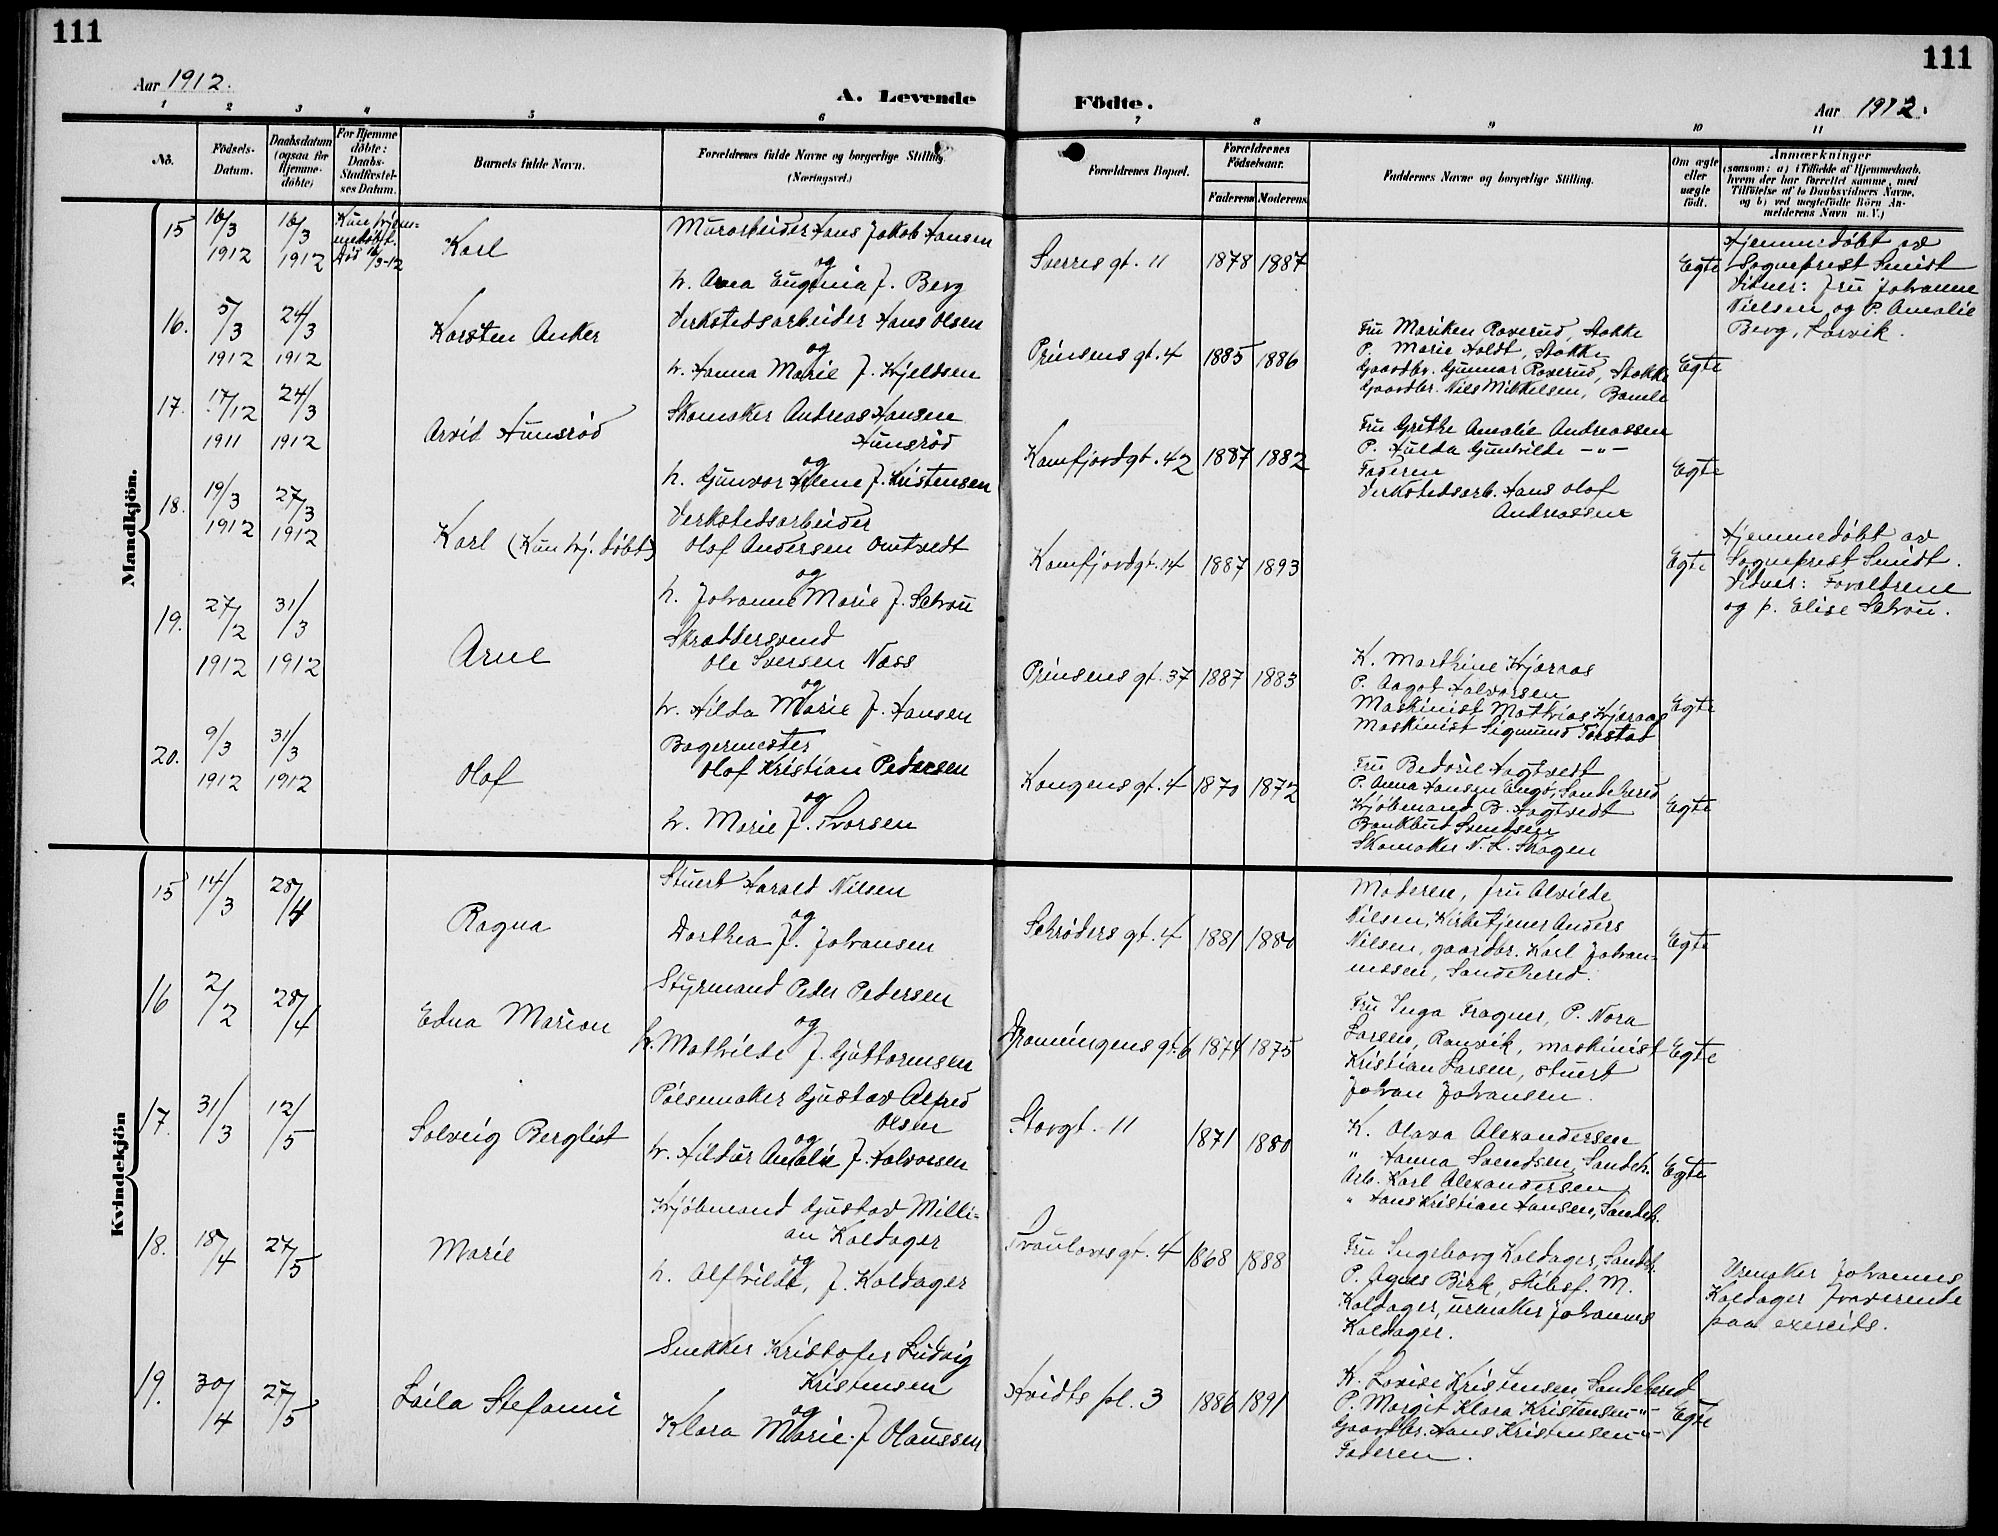 111
111
Aar 1912.
A. Levende
Födte.
Aar 1912.
1 2 3 4 5 6 7 8 9 10 11
No.
Födsels-Datum.
Daabsdatum (ogsaa for Hjemme-döbte)
For Hjemme döbte: Daabs-Stadfæstel-ses Datum.
Barnets fulde Navn.
Forældrenes fulde Navne og borgerlige Stilling (Næringsvei.)
Forældrenes Bopæl.
Forældrenes Födselsaar.
Faderens Moderens
Faddernes Navne og borgerlige Stilling.
Om ægte eller uægte födt.
Anmærkninger
(saasom: a) i Tilfælde af Hjemmedaab,
hvem der har forrettet samme, med
Tilföielse af to Daabsvidners Navne,
og b) ved uægtefödte Börn An-
melderens Navn m. V.)
Mandkjön.
15 16/3 1912 16/3 1912
Kun hjem-
medøbt.
Død 16/3-12
Karl
Murarbeider Hans Jakob Hansen
og
h. Anna Eugenia f. Berg
Sverres gt. 11 1878 1887
Egte
Hjemmedøbt av
Sogneprest Smidt
Vidner: Fru Johanne
Nielsen og P. Amalie
Berg, Larvik.
16. 5/3 1912 24/3 1912
Karsten Anker
Verkstedsarbeider Hans Olsen
og
h. Hanna Marie f. Kjeldsen
Prinsens gt. 4 1885 1886
Fru Mariken Raverud, Stokke
P. Marie Holdt, Stokke
Gaardbr. Gunnar Raverud, Stokke
Gaardbr. Nils Mikkelsen, Bamle
Egte
17. 17/12 1911 24/3 1912
Arvid Hunsrød
Skomaker Andreas Hansen
Hunsrød
og
h. Gunvor Helene f. Kristensen
Kamfjordgt. 42 1887 1882
Fru Grethe Amalie Andreassen
P. Hulda Gunhilde -"-
Faderen
Verkstedsarb. Hans Olaf
Andreassen
Egte
18. 19/3 1912 27/3 1912
Karl (Kun hj. døbt)
Verkstedsarbeider
Olaf Andersen Omtvedt
og
h. Johanne Marie f. Schrou
Kamfjordgt. 14 1887 1893
Egte
Hjemmedøbt av
Sogneprest Smidt.
Vidner: Forældrene
og p. Elise Schrou.
19. 27/2 1912 31/3 1912
Arne
Skræddersvend
Ole Sversen Næss
og
h. Hilda Marie f. Hansen
Prinsens gt. 37 1887 1883
K. Marthine Hjæraas
P. Aagot Halvorsen
Maskinist Mathias Hjæraas
Maskinist Sigmund Torstad
Egte
20. 9/3 1912 31/3 1912
Olaf
Bagermester
Olaf Kristian Pedersen
og
h. Marie f. Ivarsen
Kongens gt. 4 1870 1872
Fru Bedoril Hogtvedt
P. Anna Hansen Engø, Sandeherred
Kjøbmand B. Hogtvedt
Bankbud Svendsen
Skomaker N. L. Skogen
Egte
Kvindekjön
15 14/3 28/4
Ragna
Stuert Harald Nilsen
og
Dorthea f. Johansen
Schrøders gt. 4 1881 1880
Moderen, Fru Alvilde
Nilsen, Kirketjener Anders
Nilsen, gaardbr. Karl Johan-
nessen, Sandeherred.
Egte
16 2/2 28/4
Edna Marion
Styrmand Peder Pedersen
og
h. Mathilde f. Guttormsen
Dronningens gt. 6 1874 1875
Fru Inga Fragner, P. Nora
Larsen, Ranvik, maskinist
Kristian Larsen, stuert
Johan Johansen.
Egte
17. 31/3 12/5
Solveig Bergliot
Pølsemaker Gustav Alfred
Olsen
og
h. Hildur Amalie f. Halvorsen
Storgt. 11 1871 1880
K. Olava Alexandersen
" Hanna Svendsen, Sandeh.
Arb. Karl Alexandersen
" Hans Kristian Hansen, Sandeh.
Egte
18. 18/4 27/5
Marie
Kjøbmand Gustav Milli-
an Kaldager
og
h. Alfhilde, f. Kaldager
Traulaves gt. 4 1868 1888
Fru Ingeborg Kaldager, Sandeh.
P. Agnes Birk, skibsf. M.
Kaldager, urmaker Johannes
Kaldager.
Urmaker Johannes
Kaldager fraværende
paa exercits.
19. 30/4 27/5
Laila Stefanni
Snekker Kristofer Ludvig
Kristensen
og
Klara Marie f. Olaussen
Hvidts pl. 3 1886 1891
K. Lovise Kristensen, Sandeherred
P. Margit Klara Kristensen -"-
Gaardbr. Hans Kristensen -"-
Faderen.
Egte